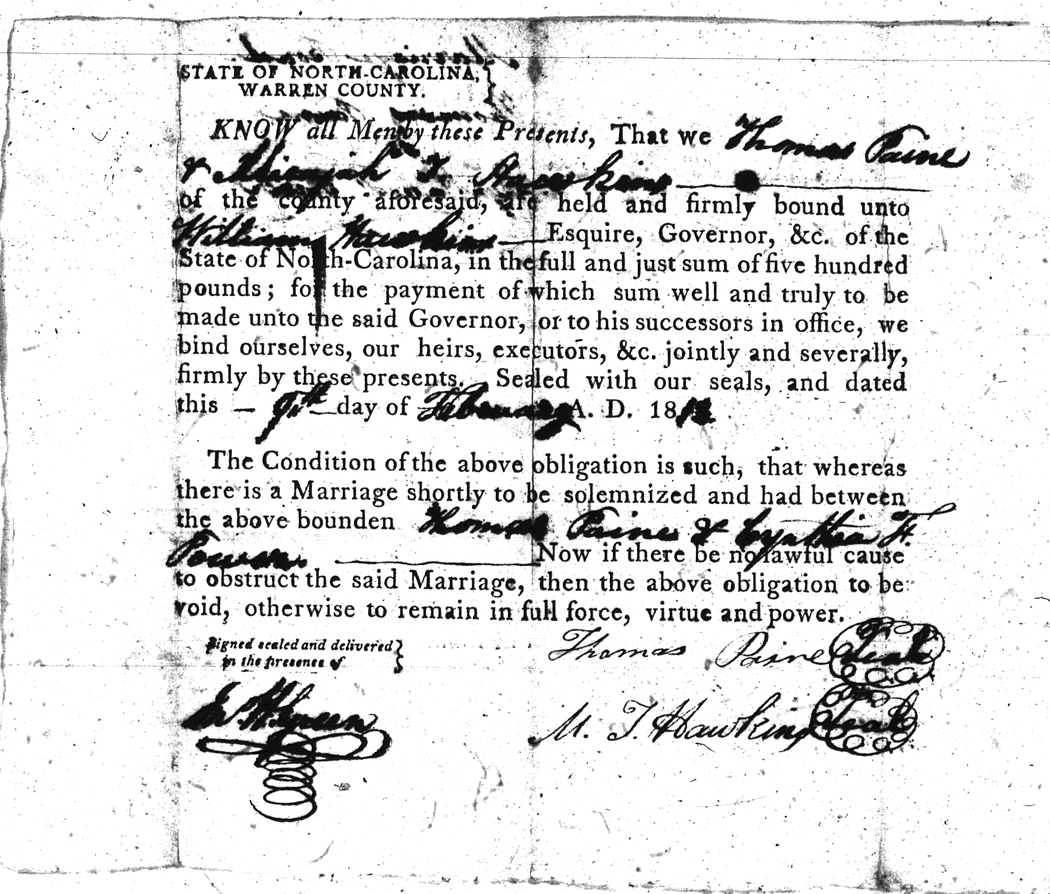 STATE OF NORTH-CAROLINA,
WARREN COUNTY.
KNOW all Men by these Presents, That we Thomas Paine
& Micajah T. Hawkins
of the county aforesaid, are held and firmly bound unto
William Hawkins Esquire, Governor, &c. of the
State of North-Carolina, in the full and just sum of five hundred
pounds; for the payment of which sum well and truly to be
made unto the said Governor, or to his successors in office, we
bind ourselves, our heirs, executors, &c. jointly and severally,
firmly by these presents. Sealed with our seals, and dated
this — day of February A. D. 18
The Condition of the above obligation is such, that whereas
there is a Marriage shortly to be solemnized and had between
the above bounden Thomas Paine & Cynthia F.
Now if there be no lawful cause
to obstruct the said Marriage, then the above obligation to be
void, otherwise to remain in full force, virtue and power.
Signed sealed and delivered
in the presence of
Thomas Paine Seal
M. T. Hawkins Seal